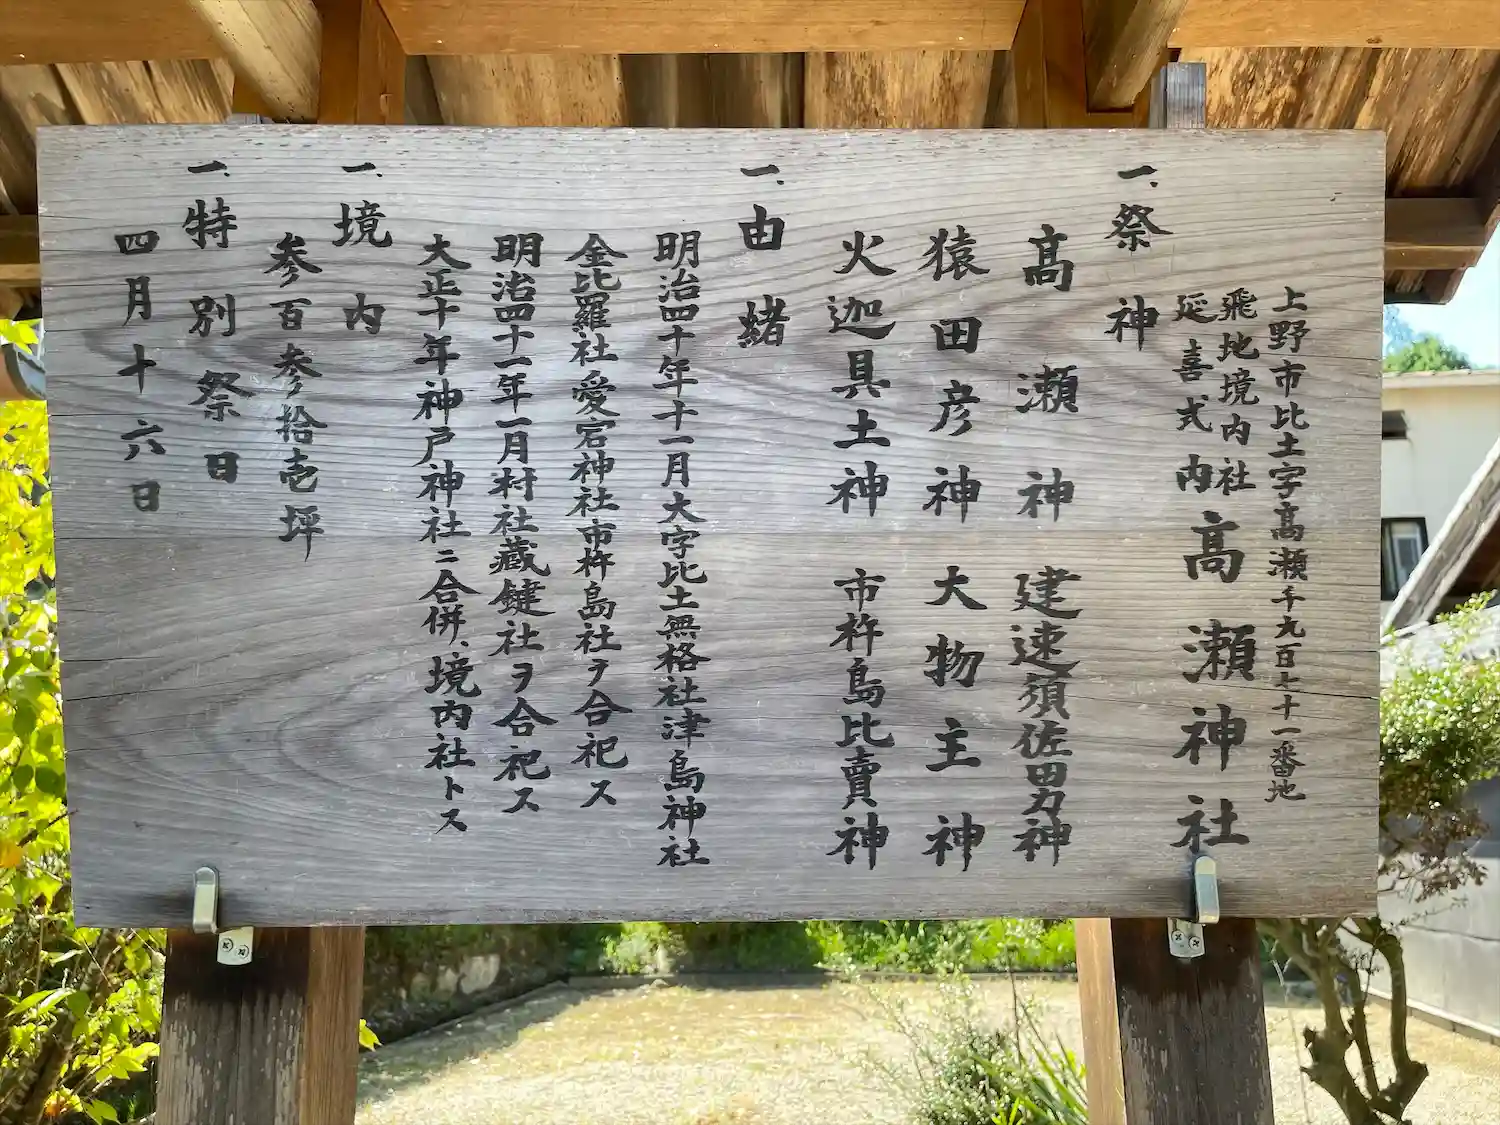 上野市比土字高瀬千九百七十一番地
飛地境内社
延喜式内
高瀬神社
一、祭神
高瀬神 建速須佐田男神
猿田彦神 大物主神
火迦具土神 市杵島比賣神
一、由緒
明治四十年十一月大字比土無格社津島神社
金比羅社愛宕神社市杵島社ヲ合祀ス
明治四十一年一月村社蔵鍵社ヲ合祀ス
大正十年神戸神社ニ合併、境内社トス
一、境内
参百参拾壱坪
一、特別祭日
四月十六日